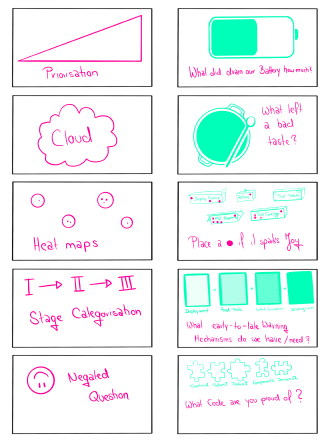 Priorisation
What did drain our Battery how much?
Cloud
What left
a bad
taste?
Heat maps
Place a ● if it sparks Joy
I → II → III
Stage Categorisation
What early-to-late Warning
Mechanisms do we have/need?
Negated
Question
What Code are you proud of?